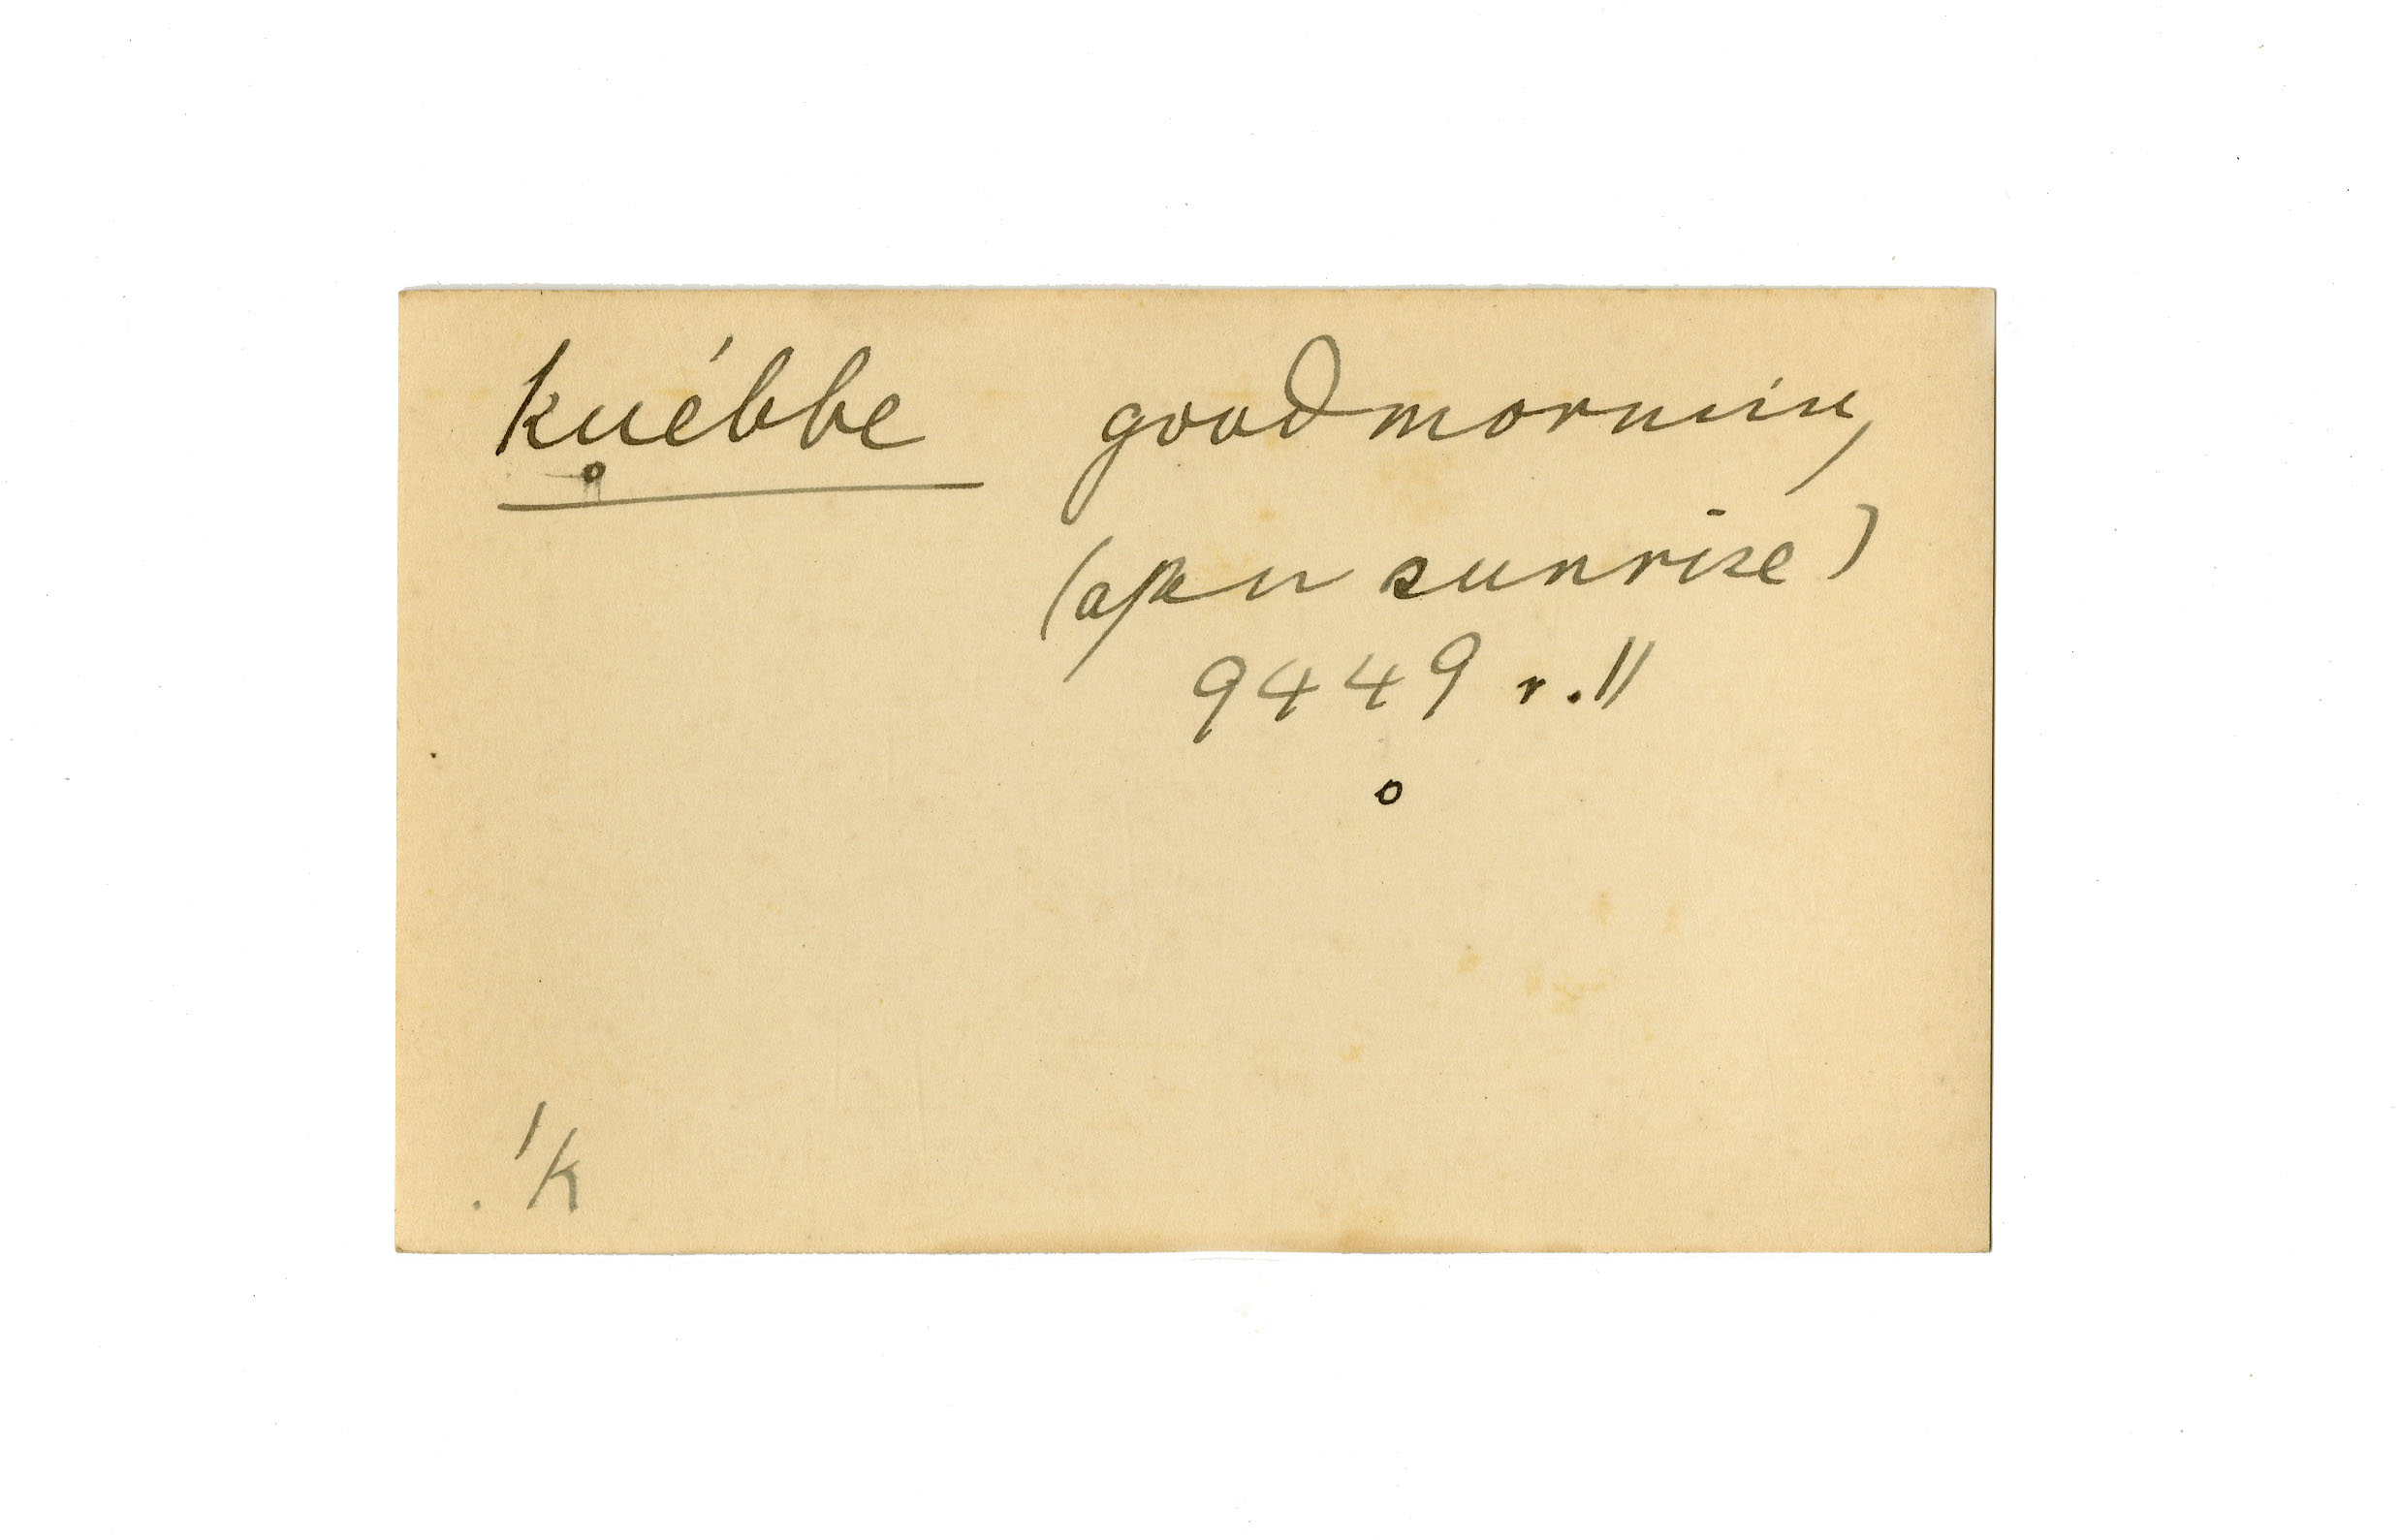 ku̥ébbe goodmorning
(after sunrise)
9449 r. 11
o
'K